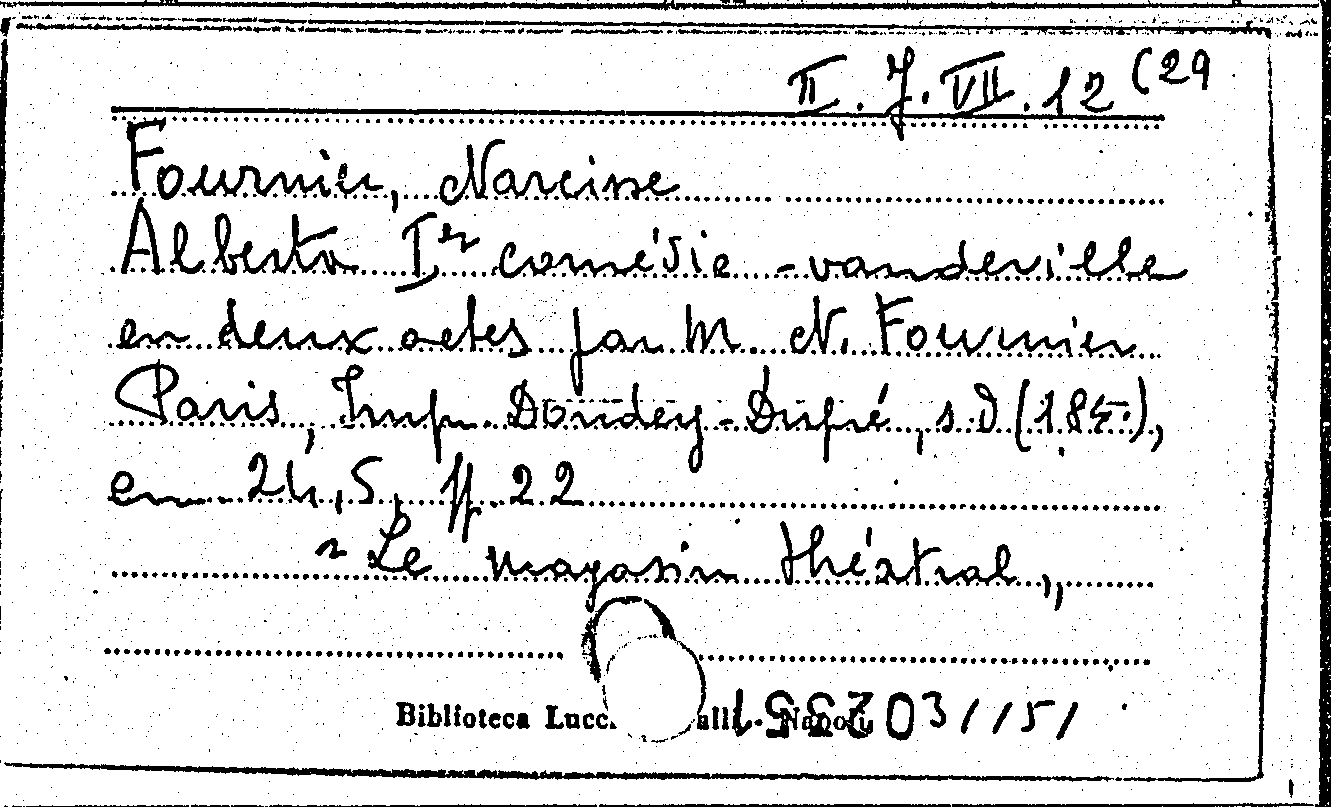 II. J. VII. 12 (29
Fournier, Narcisse
Alberta Ier comédie-vaudeville
en deux actes par M. N. Fournier
Paris, Imp. Dondey-Dupré, s.d (185.),
en 24,5, pp. 22
"Le magasin théatral"
Biblioteca Lucc alli - Napoli